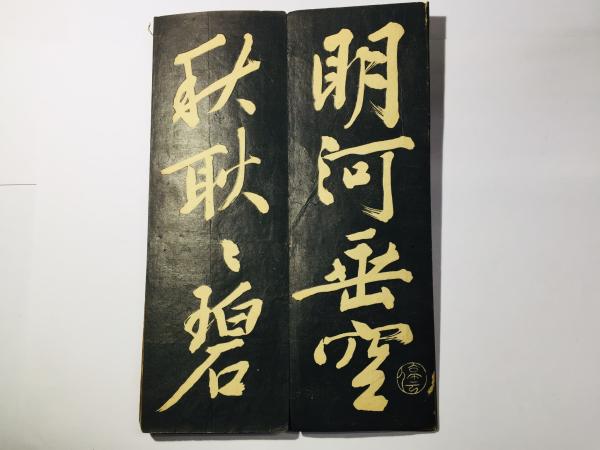 明河垂空
秋耿〻碧